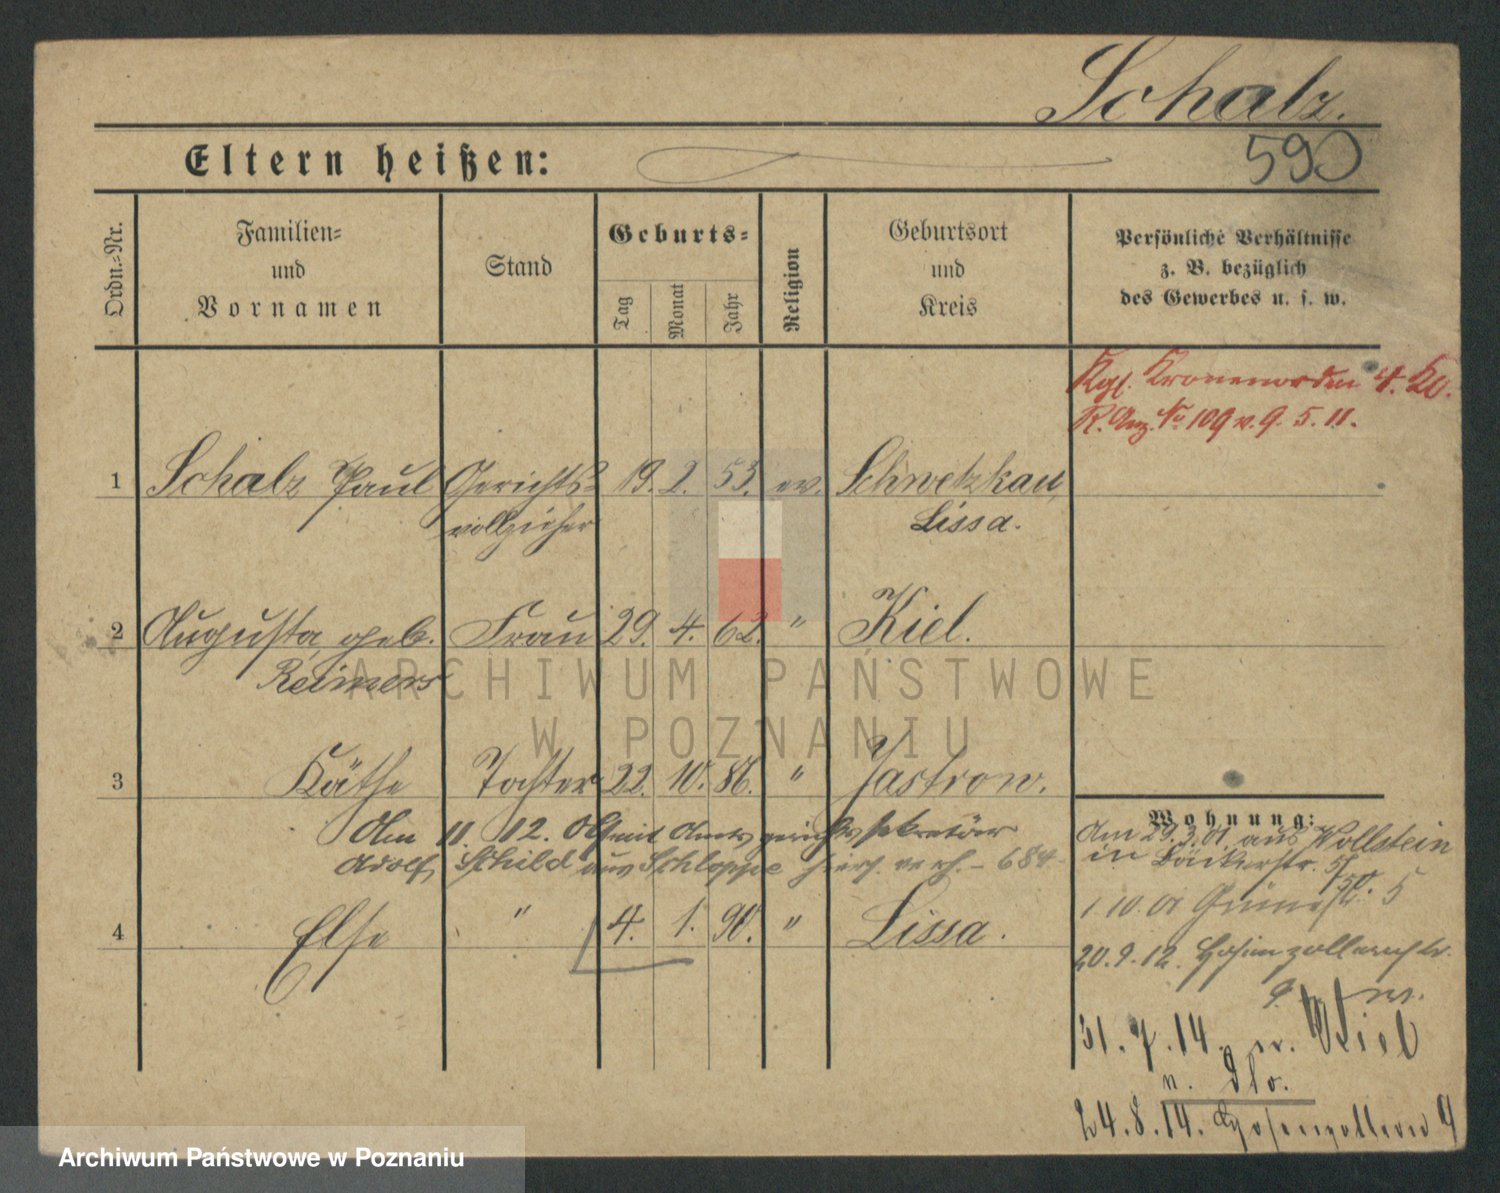 Schalz.
Eltern heißen:
590
Ordn.=Nr.
Familien=
und
Vornamen
Stand
Geburts=
Tag
Monat
Jahr
Religion
Geburtsort
und
Kreis
Persönliche Verhältnisse
z. B. bezüglich
des Gewerbes u. s. w.
Kgl. Kronenorden 4. Kl.
R. Anz. No 109 v. 9. 5. 11.
1 Schalz Paul Gerichts= 19. 2. 53. ev. Schwetzkau
vollzieher Lissa.
2 Augusta geb. Frau 29. 4. 62. " Kiel.
Reimers
ARCHIWUM PAŃSTWOWE
W POZNANIU
3 Käthe Tochter 22. 10. 86. " Jastrow.
Am 11. 12. mit Amtsgerichtssekretär
Adolf Schild aus Schloppe hier verh. - 684
4 Else " 4. 1. 90. " Lissa.
Wohnung:
Am 29.3.01. aus Wollstein
in Bäckerstr.
1.10.01 5
20.9.12. Hohenzollernstr.
9
31.7.14. n. Kiel
n. dto.
24.8.14. Hohenzollern 9
Archiwum Państwowe w Poznaniu